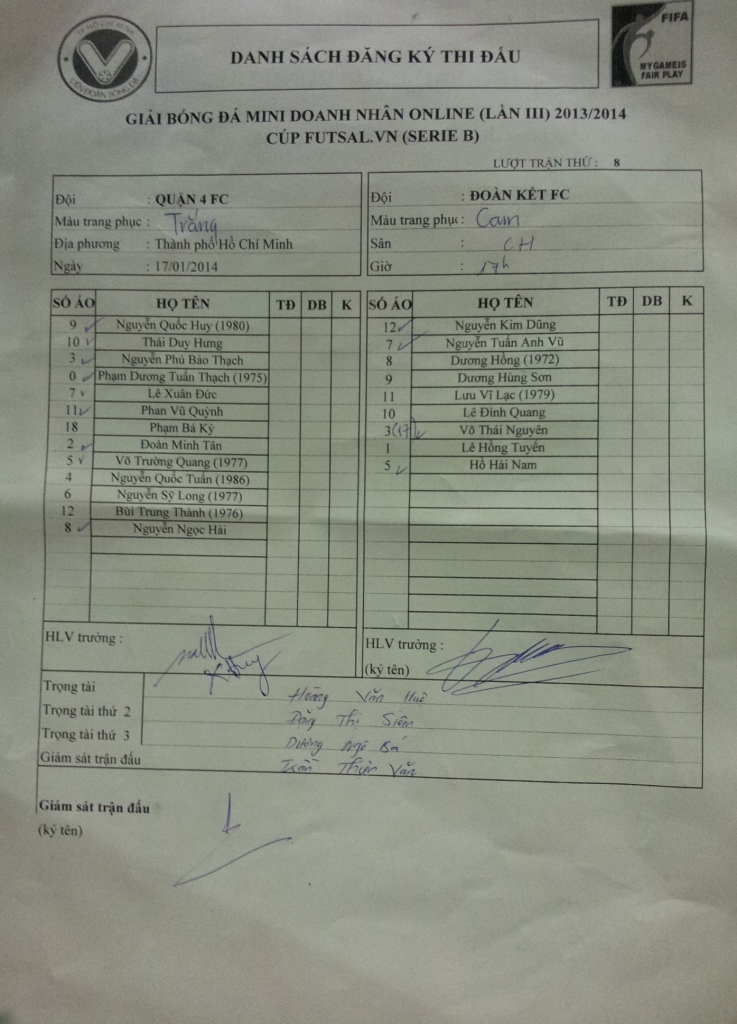 TP HỒ CHÍ MINH
LIÊN ĐOÀN BÓNG ĐÁ
DANH SÁCH ĐĂNG KÝ THI ĐẤU
FIFA
MY GAME IS
FAIR PLAY
GIẢI BÓNG ĐÁ MINI DOANH NHÂN ONLINE (LẦN III) 2013/2014
CÚP FUTSAL.VN (SERIE B)
LƯỢT TRẬN THỨ : 8
Đội : QUẬN 4 FC
Màu trang phục : Trắng
Địa phương : Thành phố Hồ Chí Minh
Ngày : 17/01/2014
Đội : ĐOÀN KẾT FC
Màu trang phục : Cam
Sân : CH
Giờ : 17h
SỐ ÁO HỌ TÊN TĐ DB K
9 Nguyễn Quốc Huy (1980)
10 Thái Duy Hưng
3 Nguyễn Phú Bảo Thạch
0 Phạm Dương Tuấn Thạch (1975)
7 Lê Xuân Đức
11 Phan Vũ Quỳnh
18 Phạm Bá Kỳ
2 Đoàn Minh Tân
5 Võ Trường Quang (1977)
4 Nguyễn Quốc Tuấn (1986)
6 Nguyễn Sỹ Long (1977)
12 Bùi Trung Thành (1976)
8 Nguyễn Ngọc Hải
SỐ ÁO HỌ TÊN TĐ DB K
12 Nguyễn Kim Dũng
7 Nguyễn Tuấn Anh Vũ
8 Dương Hồng (1972)
9 Dương Hùng Sơn
11 Lưu Vĩ Lạc (1979)
10 Lê Đình Quang
3 (17) Võ Thái Nguyên
1 Lê Hồng Tuyến
5 Hồ Hải Nam
HLV trưởng :
HLV trưởng :
(ký tên)
Trọng tài Hoàng Văn Huệ
Trọng tài thứ 2 Đặng Thị
Trọng tài thứ 3 Dương Ngô Bá
Giám sát trận đấu Văn
Giám sát trận đấu
(ký tên)